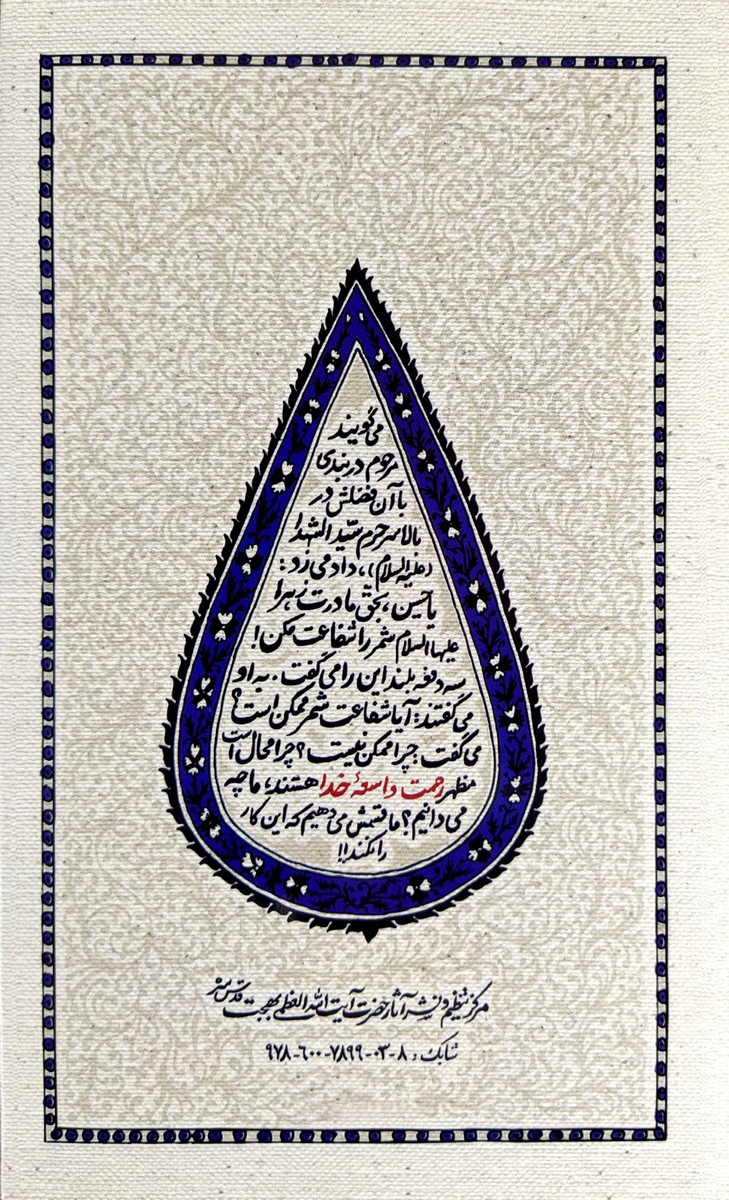 می‌گویند
مرحوم دربندی
با آن فضلش در
بالاسر حرم سیّد الشهدا
(علیه السلام)، داد می‌زد:
یا حسین، بحق مادرت زهرا
علیها السلام شمر را شفاعت مکن!
سه دفعه بلند این را می‌گفت. به او
می‌گفتند: آیا شفاعت شمر ممکن است؟
می‌گفت: چرا ممکن نیست؟ چرا محال است
مظهر رحمت واسعهٔ خدا هستند، ما چه
می‌دانیم؟ ما قسمش می‌دهیم که این کار
را نکند!!
مرکز تنظیم و نشر آثار حضرت آیت الله العظمی بهجت قدّس سرّه
شابک: ۸-۰۳-۷۸۹۹-۶۰۰-۹۷۸